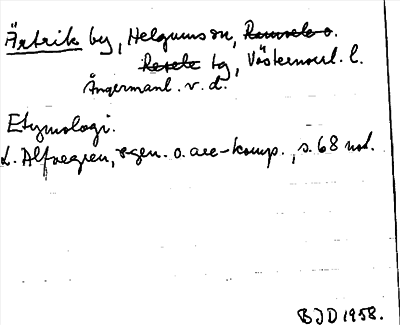 Ärtrik by, Helgums sn, Ramsele o.
Resele tg, Västernorrl. l.
Ångermanl. v. d.
Etymologi.
L. Alfvegren, r-gen. o. are-komp., s. 68 not.
BJD 1958.